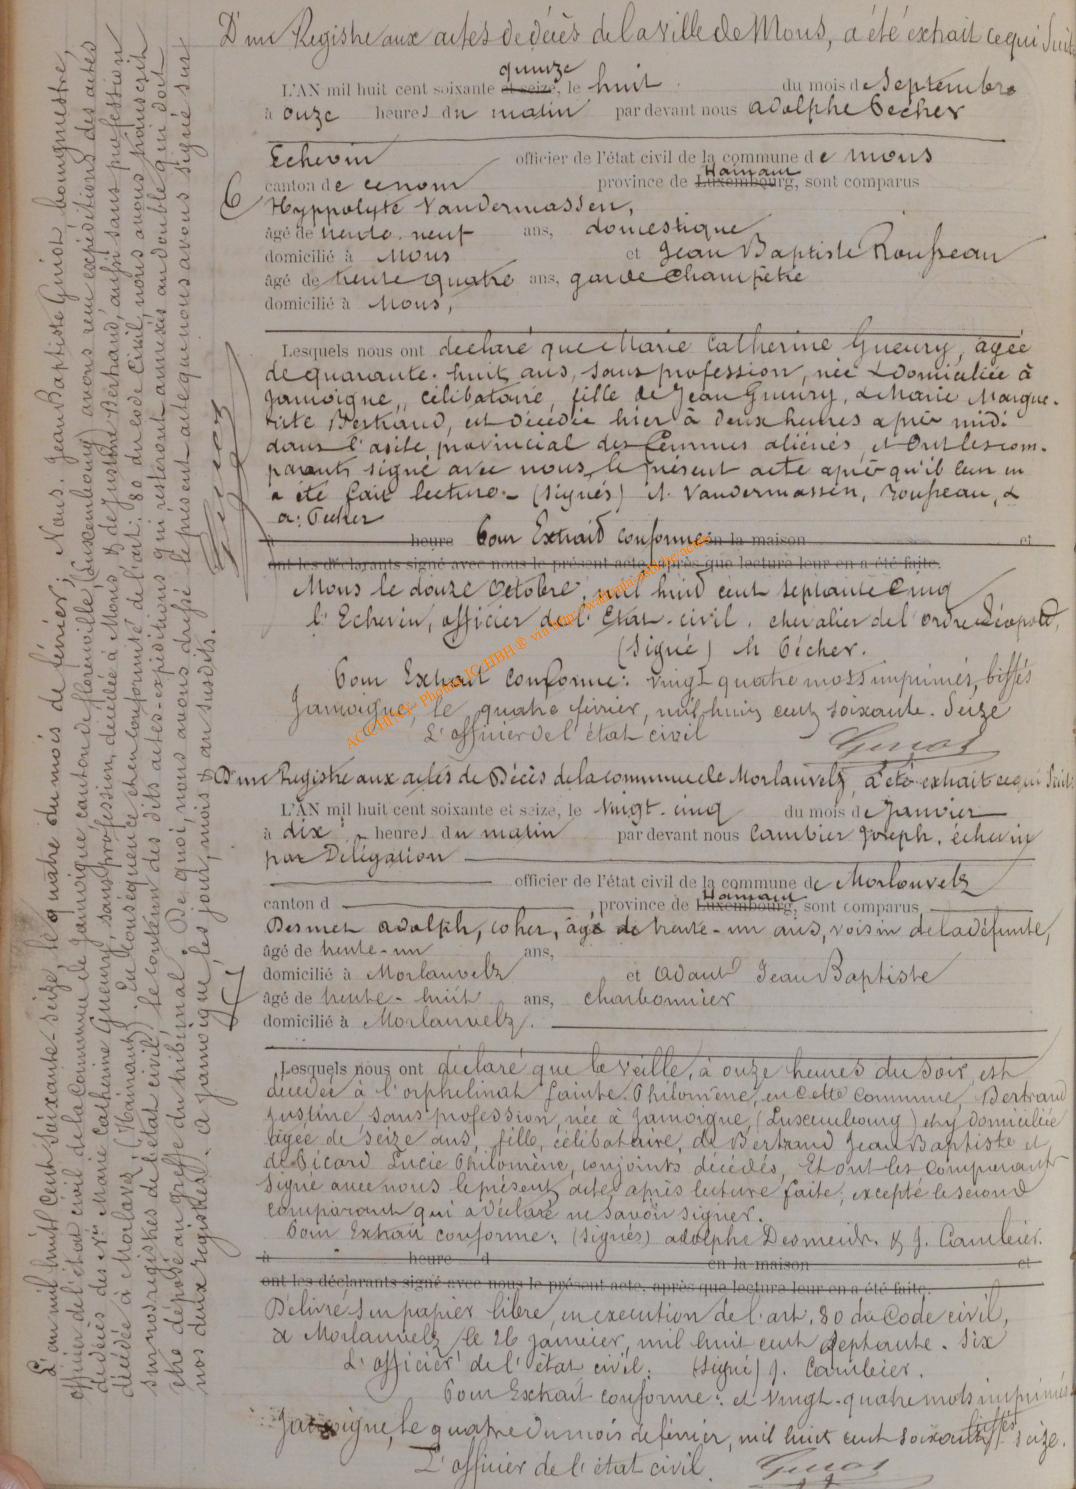 D'un Registre aux actes de décès de la ville de Mons, a été extrait ce qui suit
quinze
L'AN mil huit cent soixante et seize, le huit du mois de Septembre
à onze heures du matin par devant nous adolphe Técher
Echevin officier de l'état civil de la commune de mons
Hainaut
canton de province de Luxembourg, sont comparus
6
Hyppolyte Vandermassen,
âgé de trente-neuf ans, domestique
domicilié à Mons et Jean Baptiste Rousseau
âgé de trente quatre ans, garde champêtre
domicilié à Mons,
Lesquels nous ont déclaré que Marie Catherine Gueury, âgée
de quarante-huit ans, sans profession, née & domiciliée à
jamoigne, célibataire, fille de Jean Gueury, & Marie Margue-
rite Bertrand, est décédée hier à deux heures après midi
dans l'asile provincial des femmes aliénés, et Ont les com-
parants signé avec nous le présent acte après qu'il leur en
a été fait lecture - (signés) H. Vandermassen, Rousseau, &
a. Técher
à heure Pour Extrait conforme en la maison et
ont les déclarants signé avec nous le présent acte, après que lecture leur en a été faite.
Mons le douze Octobre, mil huit cent septante cinq
l'Echevin, officier de l'Etat-civil, chevalier de l'ordre Léopold,
(signé) Técher.
Pour Extrait conforme: vingt quatre mots imprimés, biffés
Jamoigne, le quatre février, mil huit cent soixante-Seize
L'officier de l'état civil
ACCHLUX - Photos JC HBH ® via http://
D'un Registre aux actes de Décès de la commune de Morlanwelz, a été extrait ce qui suit:
L'AN mil huit cent soixante et seize, le vingt-cinq du mois de Janvier
à dix heures du matin par devant nous Cambier Joseph, échevin
par Délégation
officier de l'état civil de la commune de Morlanwelz
Hainaut
canton d , province de Luxembourg, sont comparus
Desmet adolph, âgé de trente-un ans, voisin de la défunte,
âgé de trente-un ans,
7
domicilié à Morlanwelz et adant Jean Baptiste
âgé de trente-huit ans, charbonnier
domicilié à Morlanwelz.
Lesquels nous ont déclaré que la veille, à onze heures du soir, est
décédée à l'orphelinat Sainte Philomène, en cette commune, Bertrand
Justine, sans profession, née à Jamoigne, (Luxembourg) et y domiciliée
âgée de seize ans, fille, célibataire, de Bertrand Jean Baptiste et
de Picard Lucie Philomène, conjoints décédés, Et ont les comparants
signé avec nous le présent acte, après lecture faite, excepté le second
comparant qui a déclaré ne savoir signer.
Pour Extrait conforme: (signés) adolphe & J. Cambier.
à heure d en la maison et
ont les déclarants signé avec nous le présent acte, après que lecture leur en a été faite.
Délivré sur papier libre, en exécution de l'art. 80 du Code civil,
à Morlanwelz le 26 janvier, mil huit cent septante-six
L'officier de l'état civil, (signé) J. Cambier.
Pour Extrait conforme: et vingt-quatre mots imprimés
biffés
Jamoigne, le quatre du mois de février, mil huit cent soixante seize.
L'officier de l'état civil.
L'an mil huit cent soixante-seize, le quatre du mois de février, Nous, Jean Baptiste bourgmestre,
officier de l'état civil de la commune de Jamoigne canton de florenville, (Luxembourg) avons reçu expéditions des actes
de décès des Nés Marie Catherine Gueury, sans profession, décédée à Mons & de Justine Bertrand, aussi sans profession
décédée à Morlanwelz, (Hainaut). En conséquence et en conformité de l'art. 80 du code Civil, nous avons transcrit
sur nos registres de l'état civil, le contenu des dits actes-expéditions qui resteront annexés au double qui doit
être déposé au greffe du tribunal. De quoi, nous avons dressé le présent acte que nous avons signé sur
nos deux registres. a jamoigne, les jour, mois & an susdits.